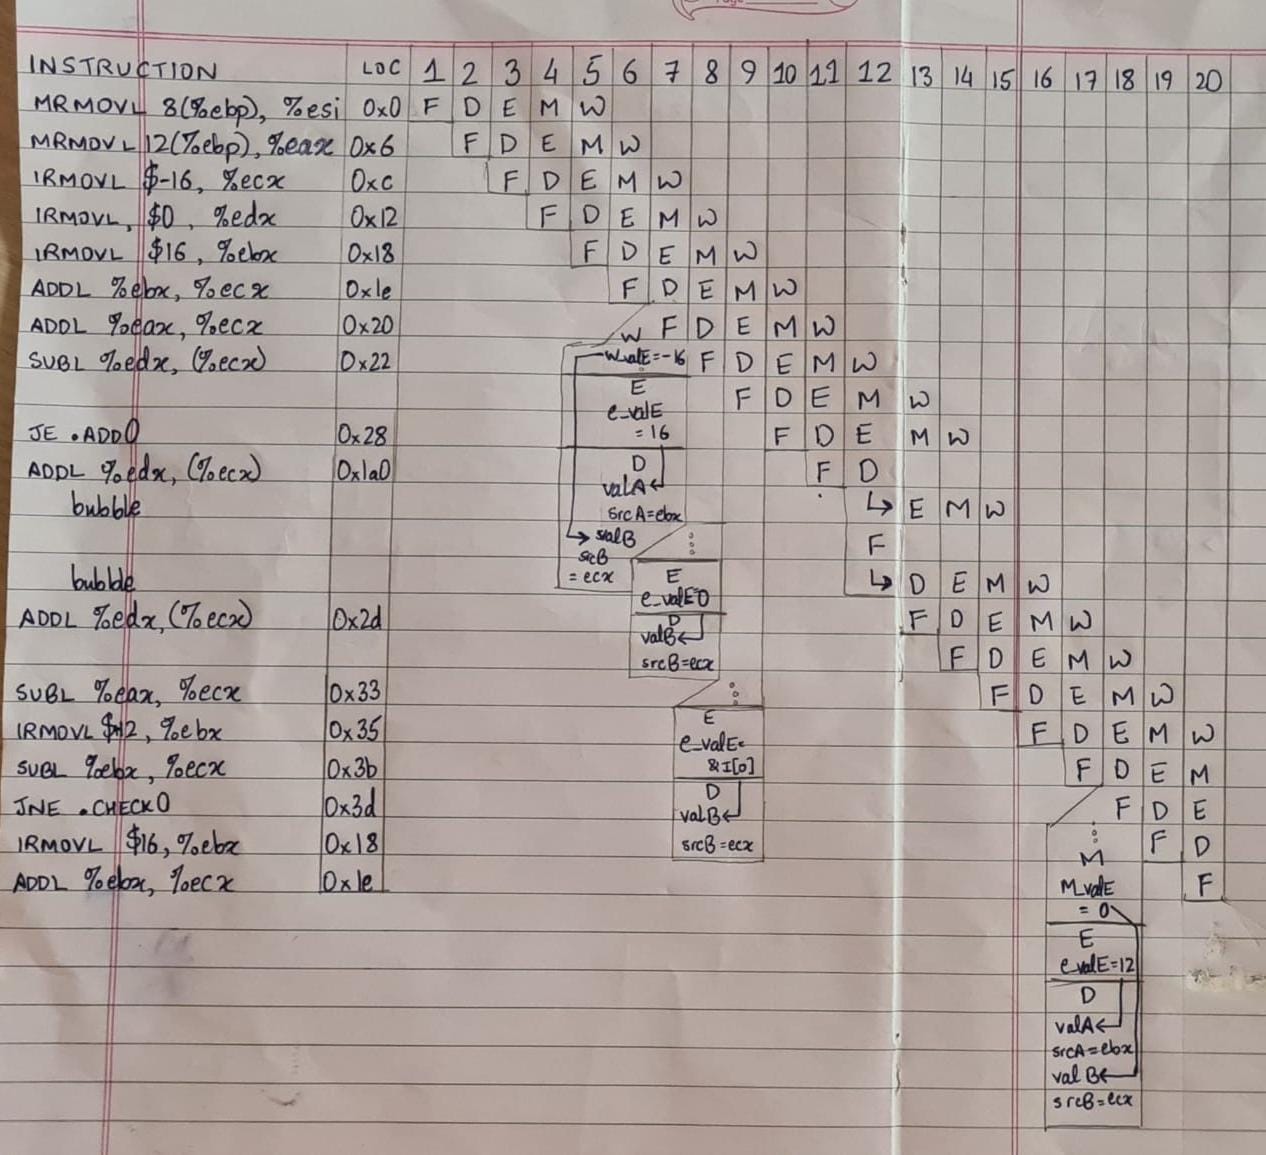 INSTRUCTION LOC 1 2 3 4 5 6 7 8 9 10 11 12 13 14 15 16 17 18 19 20
MRMOVL 8(%ebp), %esi 0x0 F D E M W
MRMOVL 12(%ebp), %eax 0x6 F D E M W
IRMOVL $-16, %ecx 0xc F D E M W
IRMOVL, $0, %edx 0x12 F D E M W
IRMOVL $16, %ebx 0x18 F D E M W
ADDL %ebx, %ecx 0x1e F D E M W
ADDL %eax, %ecx 0x20 F D E M W
SUBL %edx, (%ecx) 0x22 F D E M W
F D E M W
JE .ADD0 0x28 F D E M W
ADDL %edx, (%ecx) 0x1a0 F D
bubble ↳ E M W
F
bubble ↳ D E M W
ADDL %edx, (%ecx) 0x2d F D E M W
F D E M W
SUBL %eax, %ecx 0x33 F D E M W
IRMOVL $12, %ebx 0x35 F D E M W
SUBL %ebx, %ecx 0x3b F D E M
JNE .CHECK0 0x3d F D E
IRMOVL $16, %ebx 0x18 F D
ADDL %ebx, %ecx 0x1e F
W
W_valE=-16
E
e_valE
= 16
D
valA
srcA=ebx
valB
srcB
= ecx
E
e_valE=0
D
valB
srcB=ecx
E
e_valE=
&I[0]
D
valB
srcB=ecx
M
M_valE
= 0
E
e_valE=12
D
valA
srcA=ebx
valB
srcB=ecx